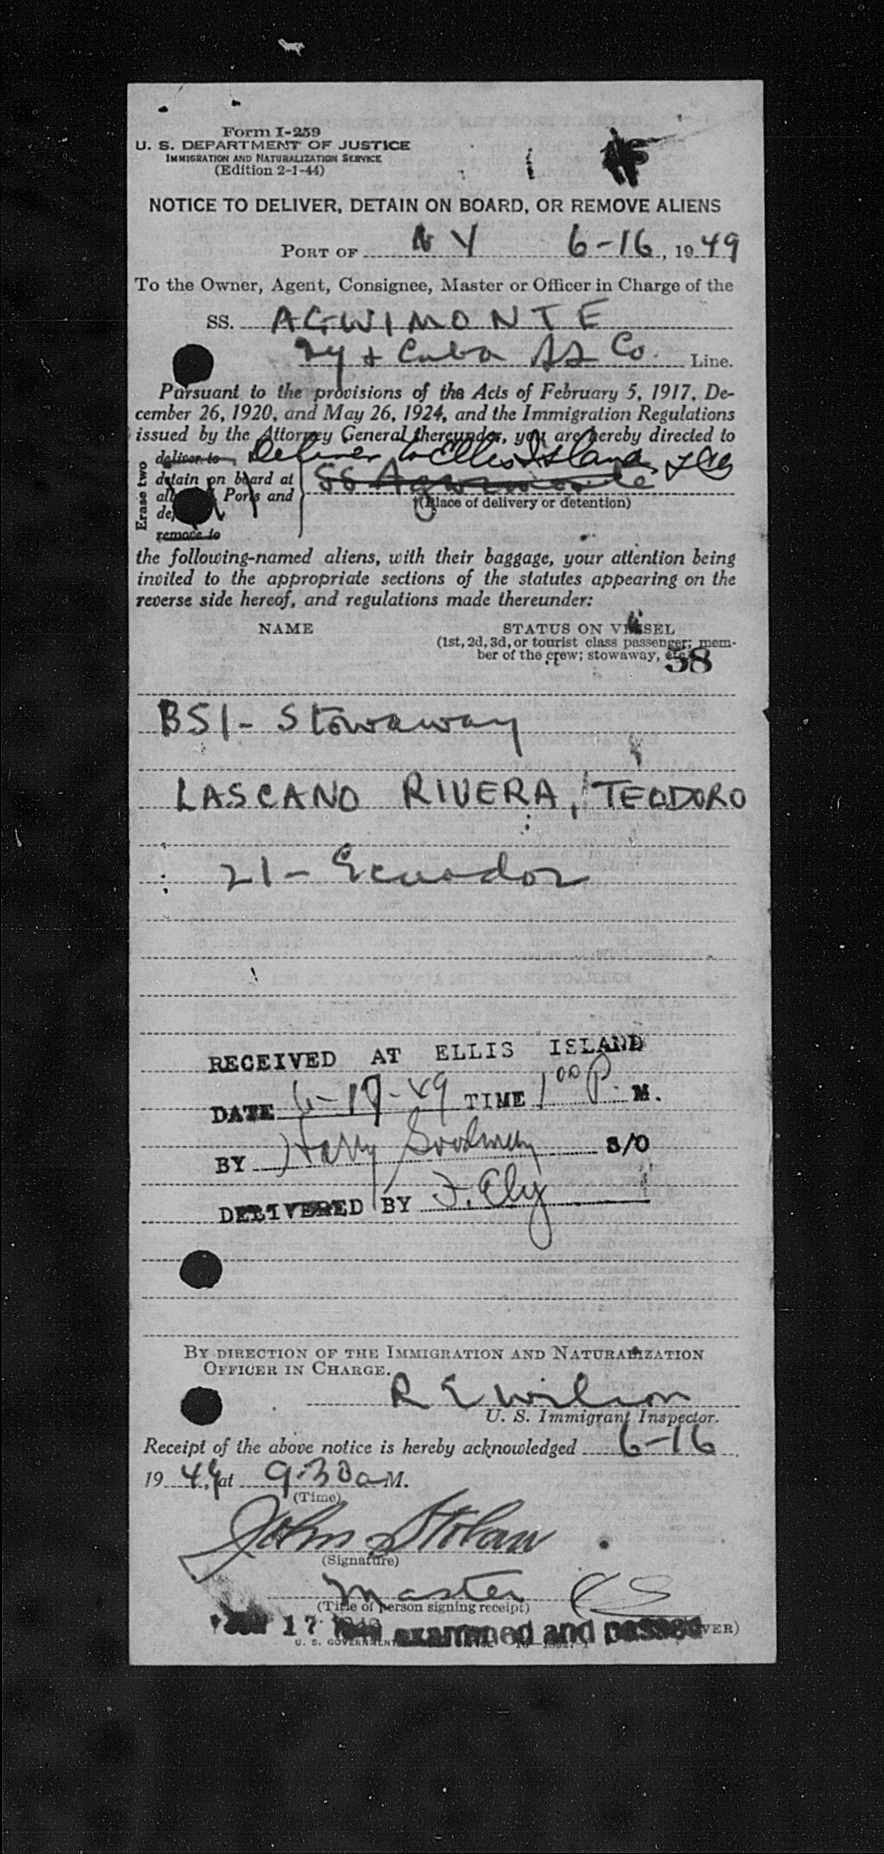 Form I-259
U. S. DEPARTMENT OF JUSTICE
IMMIGRATION AND NATURALIZATION SERVICE
(Edition 2-1-44)
NOTICE TO DELIVER, DETAIN ON BOARD, OR REMOVE ALIENS
PORT OF N Y 6-16, 1949
To the Owner, Agent, Consignee, Master or Officer in Charge of the
SS. AGWIMONTE
NY + Cuba SS Co. Line.
Pursuant to the provisions of the Acts of February 5, 1917, De-
cember 26, 1920, and May 26, 1924, and the Immigration Regulations
issued by the Attorney General thereunder, you are hereby directed to
deliver to Deliver to Ellis Island
detain on board at SS Agwimonte
Ports and
(Place of delivery or detention)
remove to
Erase two
the following-named aliens, with their baggage, your attention being
invited to the appropriate sections of the statutes appearing on the
reverse side hereof, and regulations made thereunder:
NAME STATUS ON VESSEL
(1st, 2d, 3d, or tourist class passenger; mem-
ber of the crew; stowaway, etc.)
58
BSI - Stowaway
LASCANO RIVERA, TEODORO
21 - Ecuador
RECEIVED AT ELLIS ISLAND
DATE 6-17-49 TIME 1 00 P. M.
BY Harry Goodman S/O
DELIVERED BY F. Ely
BY DIRECTION OF THE IMMIGRATION AND NATURALIZATION
OFFICER IN CHARGE.
R E Wilson
U. S. Immigrant Inspector.
Receipt of the above notice is hereby acknowledged 6-16
1949, at 9:30 a M.
(Time)
John Stolan
(Signature)
Master
(Title of person signing receipt)
17 examined and passed
U. S. GOVERNMENT